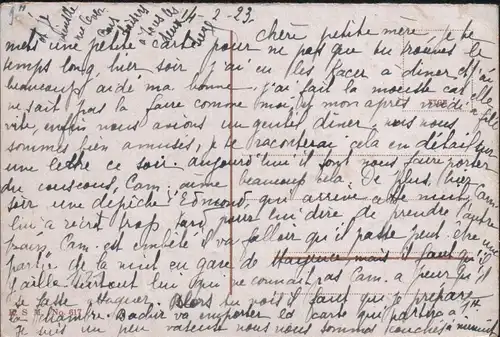 14-2-23
Chère petite mère, je te
mets une petite carte pour ne pas que tu trouves le
temps long, hier soir j'ai eu les à diner et j'ai
beaucoup aidé ma bonne, j'ai fait la moitié car elle
ne sait pas la faire comme moi, mon après midi a filé
vite, enfin nous avions un gentil diner nous nous
sommes bien amusés, je te raconterai cela en détail sur
une lettre ce soir. aujourd'hui il sont nous faire porter
du couscous, Cam. aime beaucoup cela. De plus, hier
soir, une dépêche d'Edmond, qui arrive cette nuit, Cam.
lui a récrit trop tard, pour lui dire, de prendre, autre
Cam. est embêté il va falloir qu'il passe peut être une
partie de la nuit en gare de mais il faut qu'il
y aille surtout lui qui ne connait pas Cam. a peur qu'il
se fasse Alors tu vois il faut que je prépare
la chambre. va emporter la carte qui partira à 1H
Je suis un peu vaseuse nous nous sommes couchés à minuit
M. No. 617